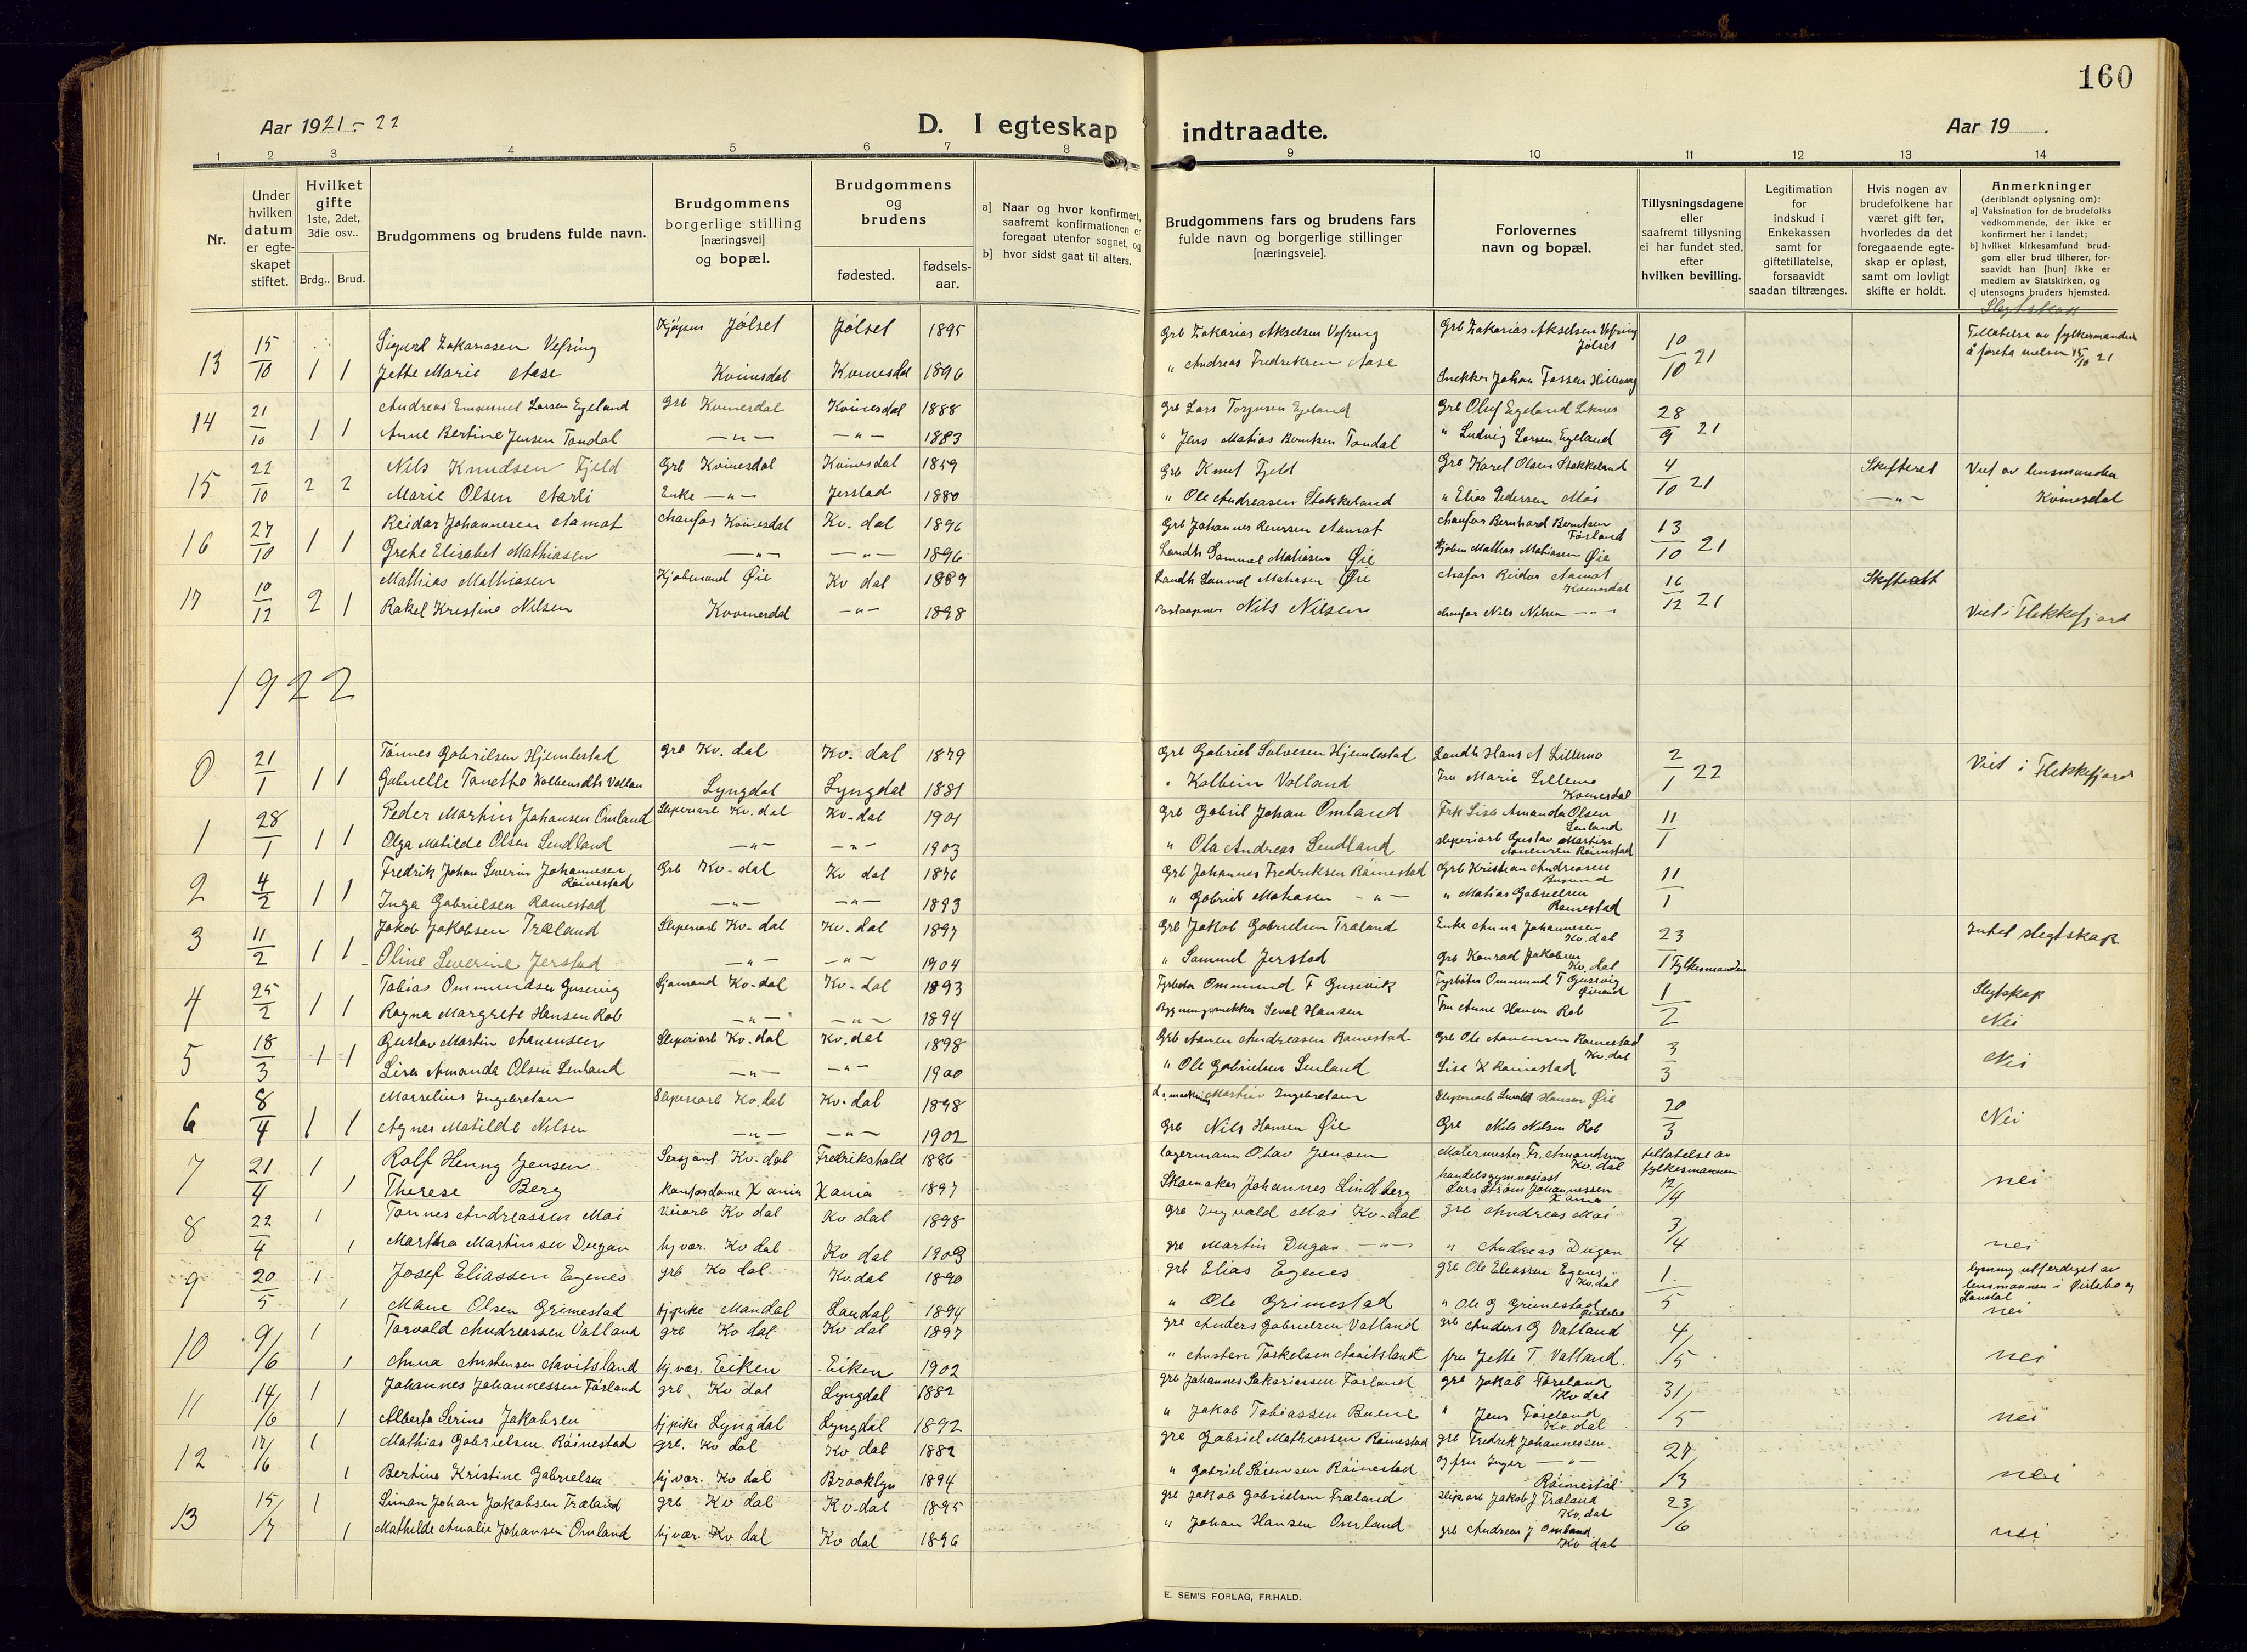 160
Aar 1921-22
D. I egteskap indtraadte.
Aar 19
1 2 3 4 5 6 7 8 9 10 11 12 13 14
Nr.
Under hvilken datum er egteskapet stiftet.
Hvilket gifte 1ste, 2det, 3die osv..
Brdg.. Brud.
Brudgommens og brudens fulde navn.
Brudgommens borgerlige stilling [næringsvei] og bopæl.
Brudgommens og brudens
fødested. fødsels-aar.
a] Naar og hvor konfirmert, saafremt konfirmationen er foregaat utenfor sognet, og
b] hvor sidst gaat til alters.
Brudgommens fars og brudens fars fulde navn og borgerlige stillinger [næringsveie].
Forlovernes navn og bopæl.
Tillysningsdagene eller saafremt tillysning ei har fundet sted, efter hvilken bevilling.
Legitimation for indskud i Enkekassen samt for giftetillatelse, forsaavidt saadan tiltrænges.
Hvis nogen av brudefolkene har været gift før, hvorledes da det foregaaende egteskap er opløst, samt om lovligt skifte er holdt.
Anmerkninger (deriblandt oplysning om):
a] Vaksination for de brudefolks vedkommende, der ikke er konfirmert her i landet;
b] hvilket kirkesamfund brudgom eller brud tilhører, forsaavidt han [hun] ikke er medlem av Statskirken, og
c] utensogns bruders hjemsted.
13 15/10 Sigurd Zakariasen Vefring Jølset Jølset 1895 Grb Zakarias Akselsen Vefring Grb Zakarias Akselsen Vefring Jølset 10/10 21 Tillatelse av fylkesmanden
1 1 Jette Marie Aase Kvinesdal Kvinesdal 1896 " Andreas Fredriksen Aase Snekker Johan
14 21/10 Andreas Emanuel Larsen Egeland Grb Kvinesdal Kvinesdal 1888 Grb Lars Torgusen Egeland Grb Oluf Egeland 28/9 21
1 1 Anne Bertine Jensen Tandal —"— —"— 1883 " Jens Matias Berntsen Tandal " Ludvig Larsen Egeland
15 22/10 Nils Knudsen Fjeld Grb Kvinesdal Kvinesdal 1859 Grb Knut Fjeld Grb Karel Olsen Stokkeland 4/10 21 Skifteret Viet av lensmanden
2 2 Marie Olsen Aarli Enke —"— Jerstad 1880 " Ole Andreasen Stokkeland " Elias Pedersen Mos —"— Kvinesdal
16 27/10 Reidar Johannesen Aamot Chaufør Kvinesdal Kv. dal 1896 Grb Johannes Reiersen Aamot chaufør Bernhard Berntsen Førland 13/10 21
1 1 Grete Elisabet Mathiasen —"— —"— 1896 Landh Sammel Matiasen Øie Kjøbm Mathias Matiasen Øie
17 10/12 Mathias Mathiasen Kjøbmand Øie Kv dal 1889 Landh Sammel Matiasen Øie Reidar Aamot Kvinesdal 16/12 21
2 1 Rakel Kristine Nilsen Kvinesdal —"— 1898 Nils Nilsen chaufør Nils Nilsen —"— Viet i Flekkefjord
1922
0 21/1 Tønnes Gabrilsen Hjemlestad grb Kv. dal Kv. dal 1879 Grb Gabriel Salvesen Hjemlestad Landh Hans A Lillemo 2/1 22 Viet i Flekkefjord
1 1 Gabrielle Tonette Lyngdal Lyngdal 1881 " Kolbein Valland Fru Marie Lillemo Kvinesdal
1 28/1 Peder Martin Johansen Omland Sliperiarb Kv. dal Kv. dal 1901 Grb Gabriel Johan Omland Frk Lisa Amanda Olsen Lenland 11/1
1 1 Olga Matilde Olsen Lendland —"— —"— 1903 " Ola Andreas Lendland sliperiarb Gustav Martin Aanensen Røinestad
2 4/2 Fredrik Johan Severin Johannesen Røinestad Grb Kv. dal Kv dal 1876 Grb Johannes Fredriksen Røinestad Grb Kristian Andreasen 11/1
1 1 Inga Gabrielsen Rønestad —"— —"— 1893 " Gabriel Matiasen —"— " Matias Gabrielsen Rønestad
3 11/2 Jakob Jakobsen Træland Sliperiarb Kv. dal Kv. dal 1897 Grb Jakob Gabrielsen Træland Enke Anna Johannesen Kv. dal 23/1 Intet slegtskap
1 1 Oline Severine Jerstad —"— —"— 1904 " Sammel Jerstad Grb Konrad Jakobsen Kv. dal Fylkesmanden
4 25/2 Tobias Ommundsen Gusevig Sjømand Kv. dal Kv. dal 1893 Fyrbøter Ommund F Gusevik Fyrbøter Ommund T Gusevig 1/2 Slegtskap
1 1 Ragna Margrete Hansen Rob —"— —"— 1894 Bygningssnekker Seval Hansen Fru Anne Hansen Rob Nei
5 18/3 Gustav Martin Aanensen Sliperiarb Kv. dal Kv. dal 1898 Grb Aanen Andreasen Rønestad Grb Ole Aanensen Rønestad Kv. dal 3/3 Nei
1 1 Lisa Amanda Olsen Lenland —"— —"— 1900 " Ole Gabrielsen Lenland Lise K Røinestad
6 8/4 Marselius Ingebretsen Sliperiarb Kv. dal Kv. dal 1898 Martin Ingebretsen Sliperiarb Sevald Hansen Øie 20/3 Nei
1 1 Agnes Matilde Nilsen —"— —"— 1902 Grb Nils Hansen Øie Grb Nils Nilsen Rob
7 21/4 1 Rolf Henny Jensen Sersjant Kv. dal Fredrikshald 1886 lagermann Olav Jensen Malermester Fr. Amandsen Kv. dal tillatelse av fylkesmannen
1 Therese Berg Kontordame Xania Xania 1897 Skomaker Johannes Lindberg handelsgymnasiast Lars Strøm Johannessen Xania 12/4 nei
8 22/4 1 Tønnes Andreassen Moi Veiarb Kv dal Kv dal 1898 grb Ingvald Moi Kv. dal grb Andreas Moi 3/4
1 Martha Martinsen Dugan hj vær. Kv dal Kv dal 1903 grb Martin Dugan —"— " Andreas Dugan nei
9 20/5 1 Josef Eliassen Egenes grb Kv dal Kv. dal 1890 grb Elias Egenes grb Ole Eliassen Egenes Kv. dal 1/5 lysning utferdiget av lensmannen i Øislebø og Laudal
1 Marie Olsen Grimestad hj pike Mandal Laudal 1894 " Ole Grimestad " Ole G Grimestad Øislebø nei
10 9/6 1 Torvald Andreassen Vatland grb Kv dal Kv dal 1897 grb Anders Gabrielsen Vatland grb Anders G Vatland 4/5
1 Anna Austensen Aavitsland hj vær. Eiken Eiken 1902 " Austen Torkelsen Aavitslandt fru Jette T. Vatland nei
11 14/6 1 Johannes Johannessen Førland grb Kv dal Lyngdal 1882 grb Johannes Sakariassen Førland grb Jakob Føreland Kv dal 31/5
1 Alberta Serine Jakobsen hj pike Lyngdal Lyngdal 1892 " Jakob Tobiassen Buene " Jens Føreland Kv dal nei
12 17/6 1 Mathias Gabrielsen Røinestad grb. Kv dal Kv dal 1882 grb Gabriel Mathiassen Røinestad grb Fredrik Johannessen 27/3
1 Bertine Kristine Gabrielsen hj vær. Kv dal Brooklyn 1894 " Gabriel Sørensen Røinestad og fru Inger —"— Røinestad nei
13 15/7 1 Simon Johan Jakobsen Træland grb Kv dal Kv. dal 1895 grb Jakob Gabrielsen Træland sliparb Jakob J Træland Kv. dal 23/6
1 Mathilde Amalie Johansen Omland hj vær. Kv dal Kv dal 1896 " Johan Hansen Omland grb Andreas J Omland Kv dal nei
E. SEM'S FORLAG, FR.HALD.